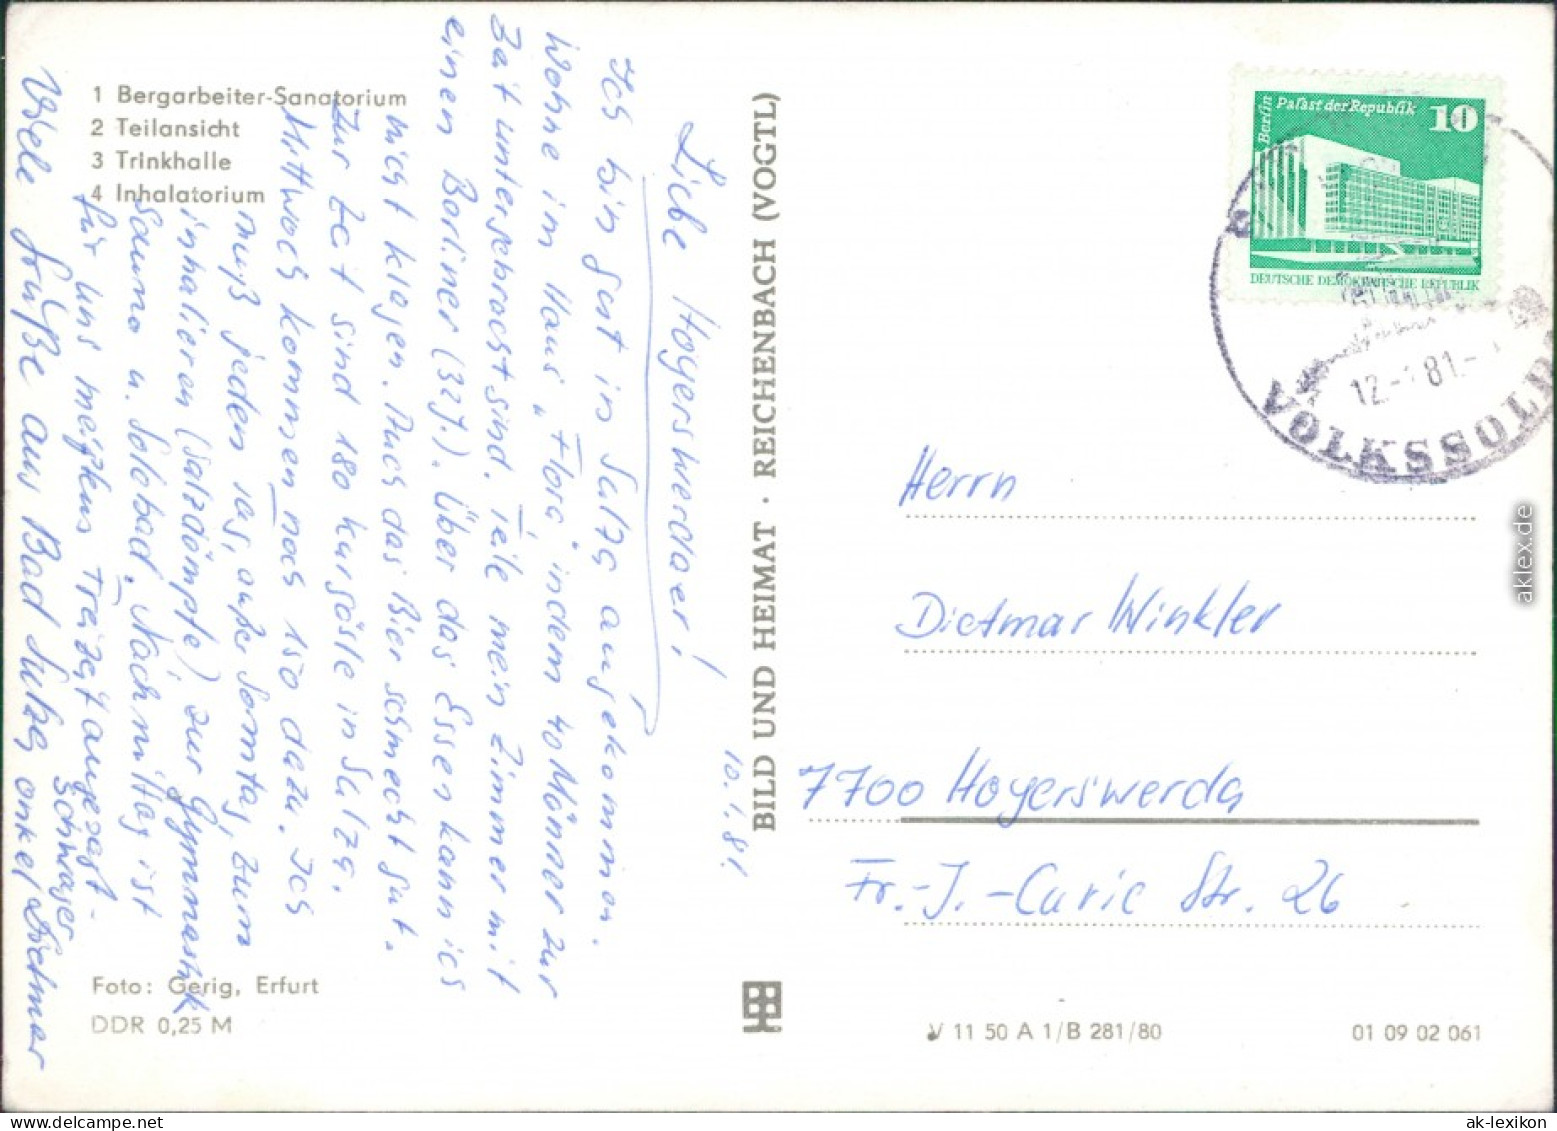 1 Bergarbeiter-Sanatorium
2 Teilansicht
3 Trinkhalle
4 Inhalatorium
10.1.81.
Liebe Hoyerswerdaer!
Ich bin gut in Sulza angekommen.
Wohne im Haus „Flora“ indem 40 Männer zur
Zeit untergebracht sind. Teile mein Zimmer mit
einen Berliner (32 J.). Über das Essen kann ich
nicht klagen. Auch das Bier schmeckt gut.
Zur Zeit sind 180 Kurgäste in Sulza.
Mittwoch kommen noch 150 dazu. Ich
muß jeden Tag, außer Sonntag, zum
inhalieren (Salzdämpfe) zur Gymnastik
Sauna u. Solebad. Nachmittag ist
für uns meistens Freizeit angesagt.
Viele Grüße aus Bad Sulza Onkel Dietmar
Schwager
Foto: Gerig, Erfurt
DDR 0,25 M
BILD UND HEIMAT · REICHENBACH (VOGTL)
Berlin
Palast der Republik 10
DEUTSCHE DEMOKRATISCHE REPUBLIK
12.-1.81.-
VOLKSSOLB
Herrn
Dietmar Winkler
7700 Hoyerswerda
Fr.-J.-Curie Str. 26
V 11 50 A 1/B 281/80
01 09 02 061
aklex.de
ak-lexikon